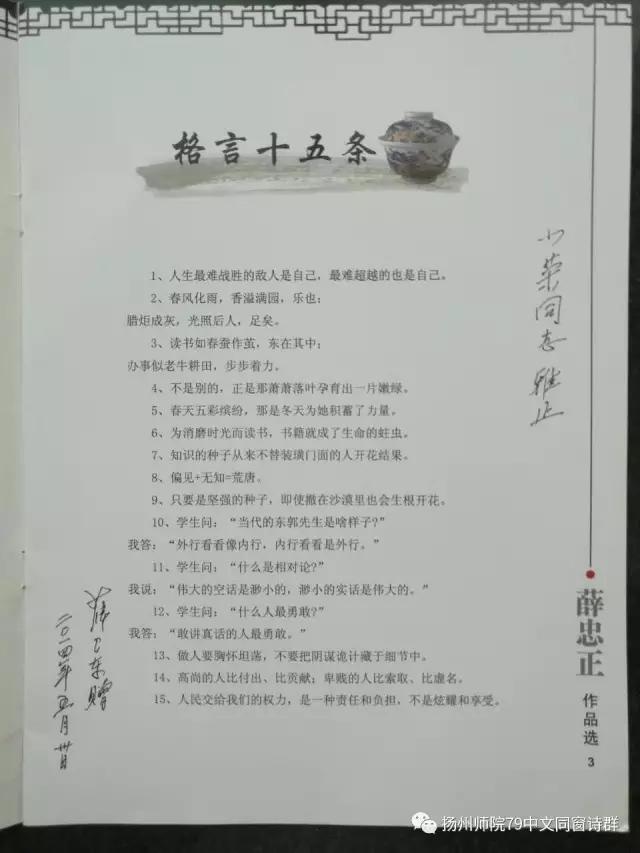 格言十五条
1、人生最难战胜的敌人是自己，最难超越的也是自己。
2、春风化雨，香溢满园，乐也；
腊炬成灰，光照后人，足矣。
3、读书如春蚕作茧，东在其中；
办事似老牛耕田，步步着力。
4、不是别的，正是那萧萧落叶孕育出一片嫩绿。
5、春天五彩缤纷，那是冬天为她积蓄了力量。
6、为消磨时光而读书，书籍就成了生命的蛀虫。
7、知识的种子从来不替装璜门面的人开花结果。
8、偏见+无知=荒唐。
9、只要是坚强的种子，即使撒在沙漠里也会生根开花。
10、学生问：“当代的东郭先生是啥样子?”
我答：“外行看看像内行，内行看看是外行。”
11、学生问：“什么是相对论?”
我说：“伟大的空话是渺小的，渺小的实话是伟大的。”
12、学生问：“什么人最勇敢?”
我答：“敢讲真话的人最勇敢。”
13、做人要胸怀坦荡，不要把阴谋诡计藏于细节中。
14、高尚的人比付出、比贡献；卑贱的人比索取、比虚名。
15、人民交给我们的权力，是一种责任和负担，不是炫耀和享受。
小荣同志 雅正
赠
二〇一四年五月卅日
薛忠正
作品选
3
扬州师院79中文同窗诗群